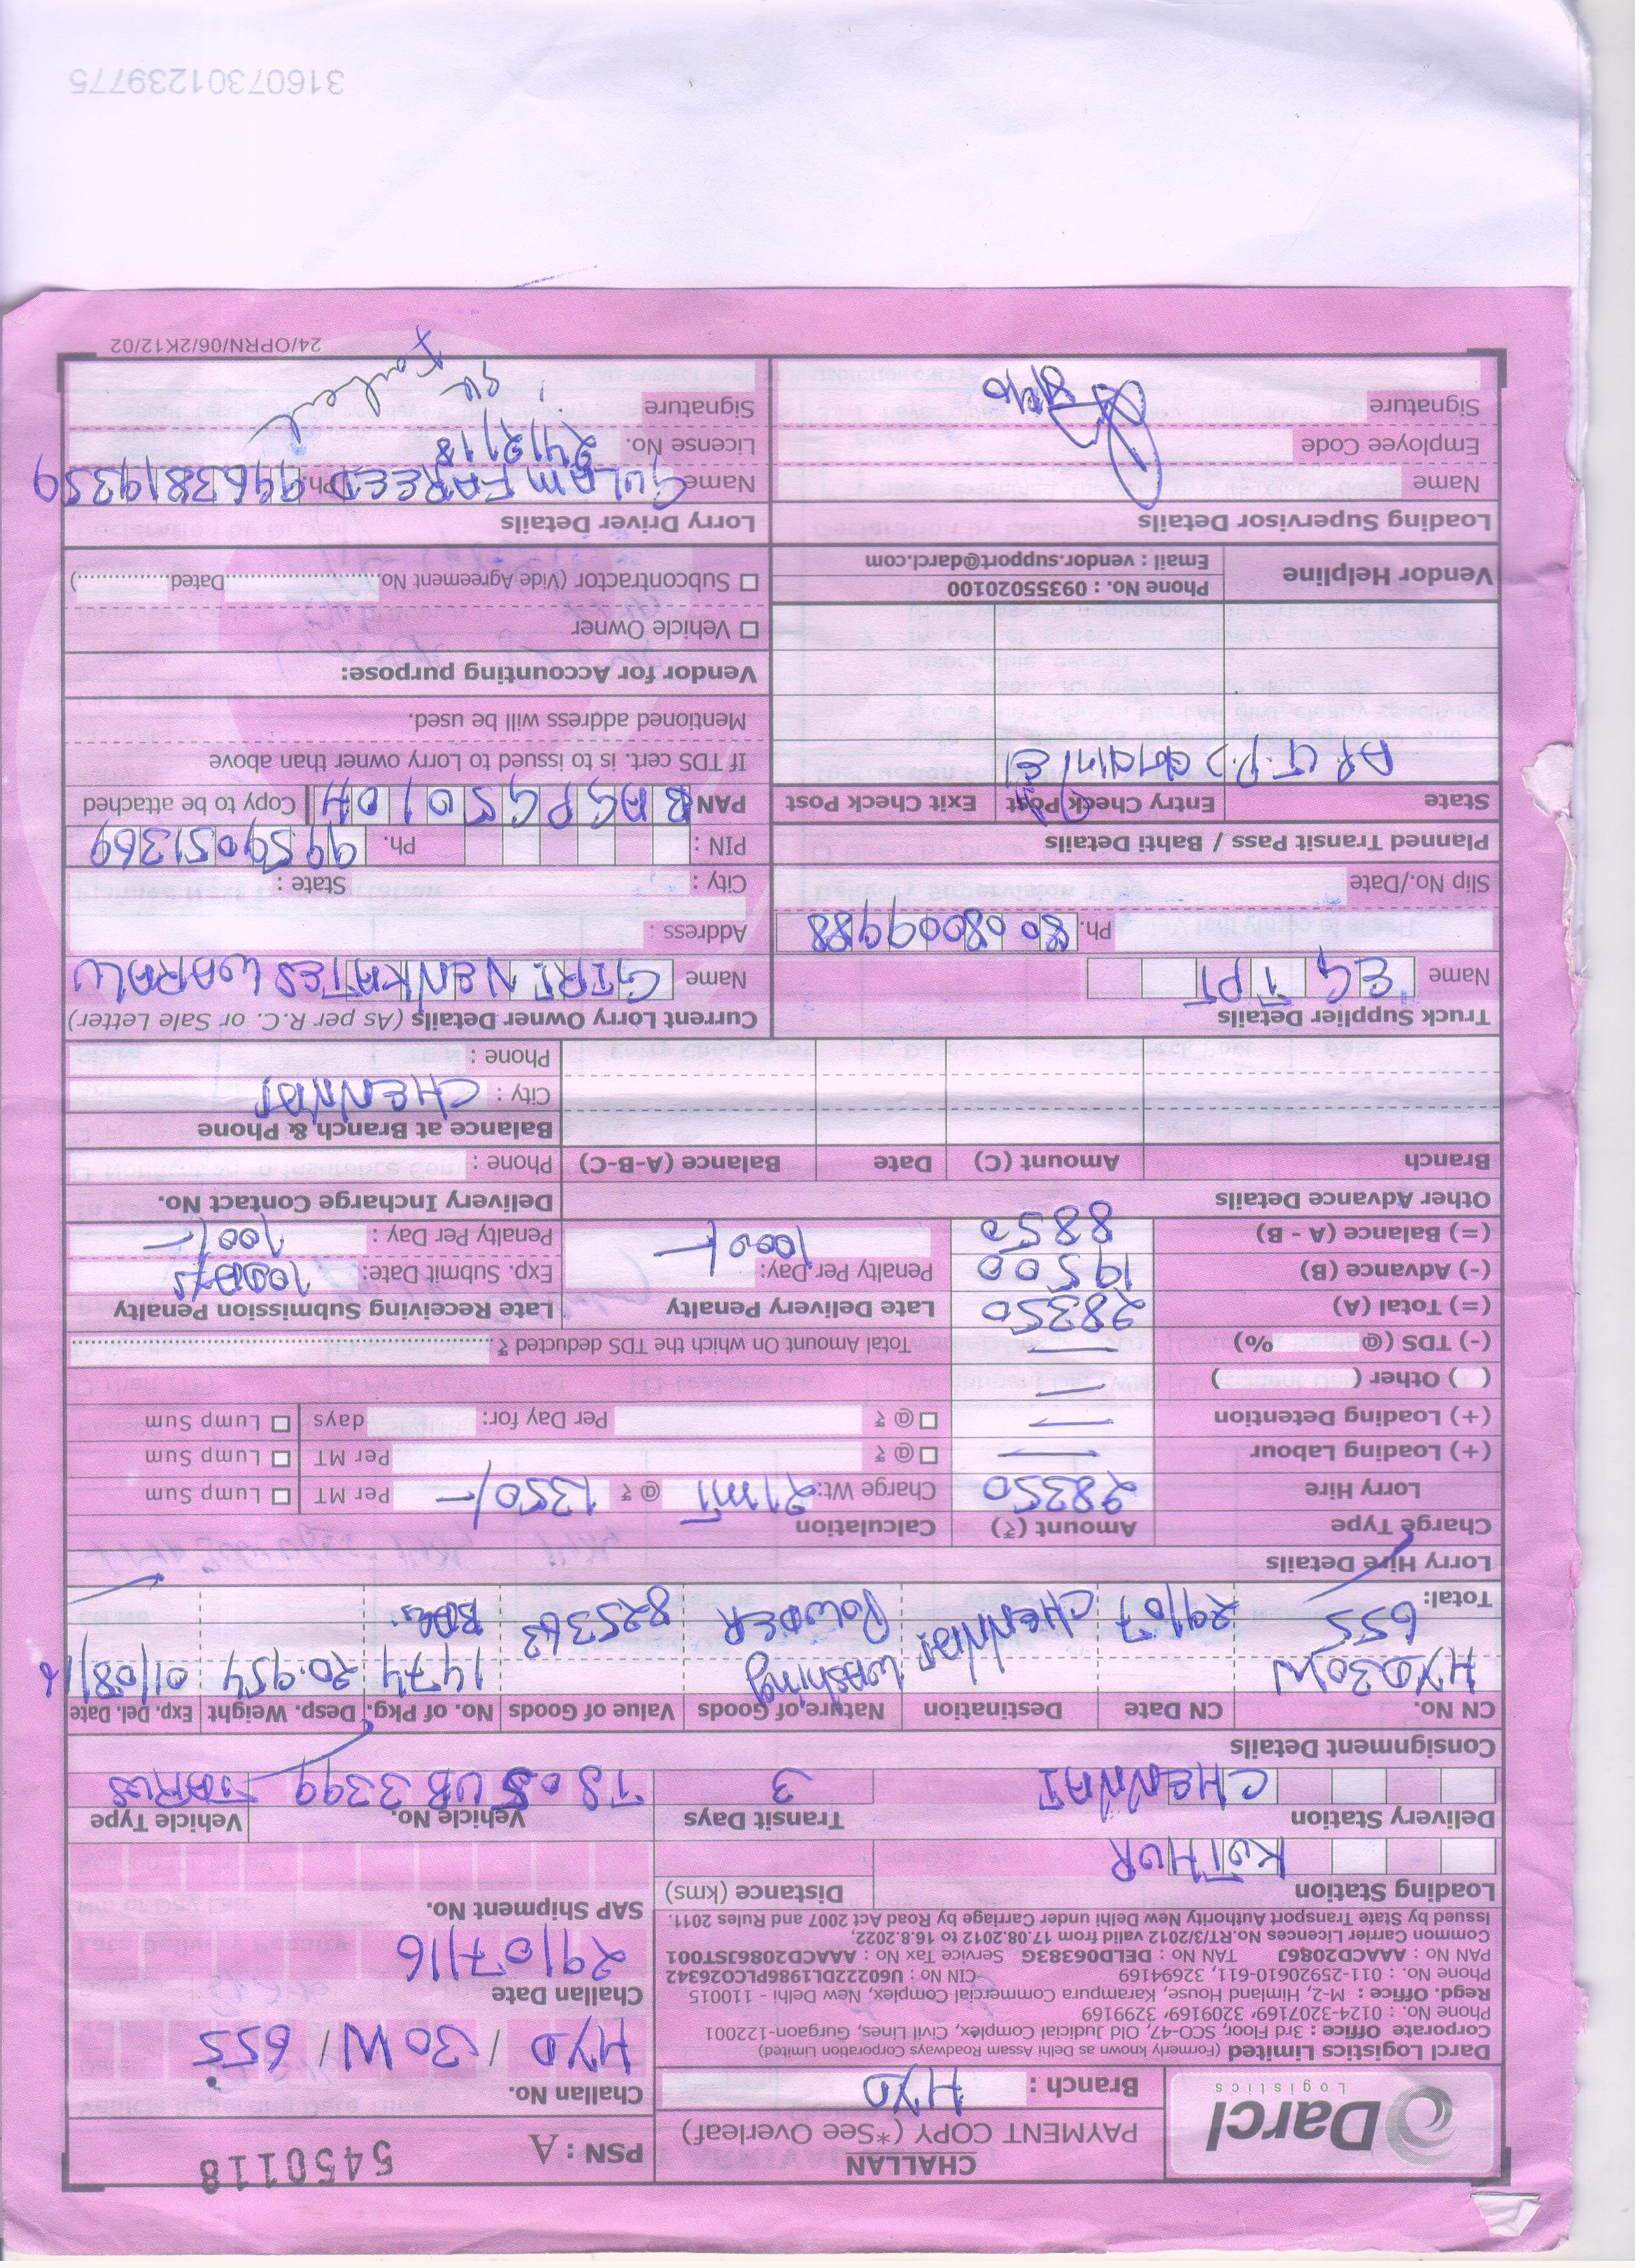 Darcl
Logistics
CHALLAN
PAYMENT COPY (*See Overleaf)
Branch : HYD
PSN : A 5450118
Challan No.
HYD / 30W / 655
Challan Date
29/07/16
SAP Shipment No.
Darcl Logistics Limited (Formerly known as Delhi Assam Roadways Corporation Limited)
Corporate Office : 3rd Floor, SCO-47, Old Judicial Complex, Civil Lines, Gurgaon-122001
Phone No. : 0124-3207169, 3209169, 3299169
Regd. Office : M-2, Himland House, Karampura Commercial Complex, New Delhi - 110015
Phone No. : 011-25920610-611, 32694169 CIN No : U60222DL1986PLCO26342
PAN No : AAACD2086J TAN No : DELD06383G Service Tax No : AAACD2086JST001
Common Carrier Licences No.RT/3/2012 valid from 17.08.2012 to 16.8.2022,
Issued by State Transport Authority New Delhi under Carriage by Road Act 2007 and Rules 2011.
Loading Station Distance (kms)
KOTHUR
Delivery Station Transit Days Vehicle No. Vehicle Type
CHENNAI 3 TS05UB3399 TARUS
Consignment Details
CN No. CN Date Destination Nature of Goods Value of Goods No. of Pkg. Desp. Weight Exp. Del. Date
HYD30W Washing 1474 20.954 01/08/16
655 29/07 CHENNAI POWDER 825363 BAGs
Total:
Lorry Hire Details
Charge Type Amount (₹) Calculation
Lorry Hire 28350 Charge Wt: 21MT @ ₹ 1350/- Per MT Lump Sum
(+) Loading Labour — @ ₹ Per MT Lump Sum
(+) Loading Detention — @ ₹ Per Day for: days Lump Sum
( ) Other ( ) —
(-) TDS (@ %) — Total Amount On which the TDS deducted ₹
(=) Total (A) 28350 Late Delivery Penalty Late Receiving Submission Penalty
(-) Advance (B) 19500 Penalty Per Day: 1000/- Exp. Submit Date: 10DAYS
(=) Balance (A - B) 8850 Penalty Per Day : 100/-
Other Advance Details Delivery Incharge Contact No.
Branch Amount (C) Date Balance (A-B-C) Phone :
Balance at Branch & Phone
City : CHENNAI
Phone :
Truck Supplier Details
Name EG TPT
Ph. 8008009988
Slip No./Date
Current Lorry Owner Details (As per R.C. or Sale Letter)
Name GIRI VENKATESWARALU
Address :
City : State :
PIN : Ph. 9959051369
PAN BAGPG5010H Copy to be attached
If TDS cert. is to issued to Lorry owner than above
Mentioned address will be used.
Planned Transit Pass / Bahti Details
State Entry Check Post Exit Check Post
AP (T.P.) बनवानी है
Vendor for Accounting purpose:
Vehicle Owner
Subcontractor (Vide Agreement No. Dated )
Vendor Helpline
Phone No. : 09355020100
Email : vendor.support@darcl.com
Loading Supervisor Details
Name
Employee Code
Signature
Lorry Driver Details
Name GULAM FAREED Ph. 9963819359
License No. 24/12/18
Signature
24/OPRN/06/2K12/02
31607301239775